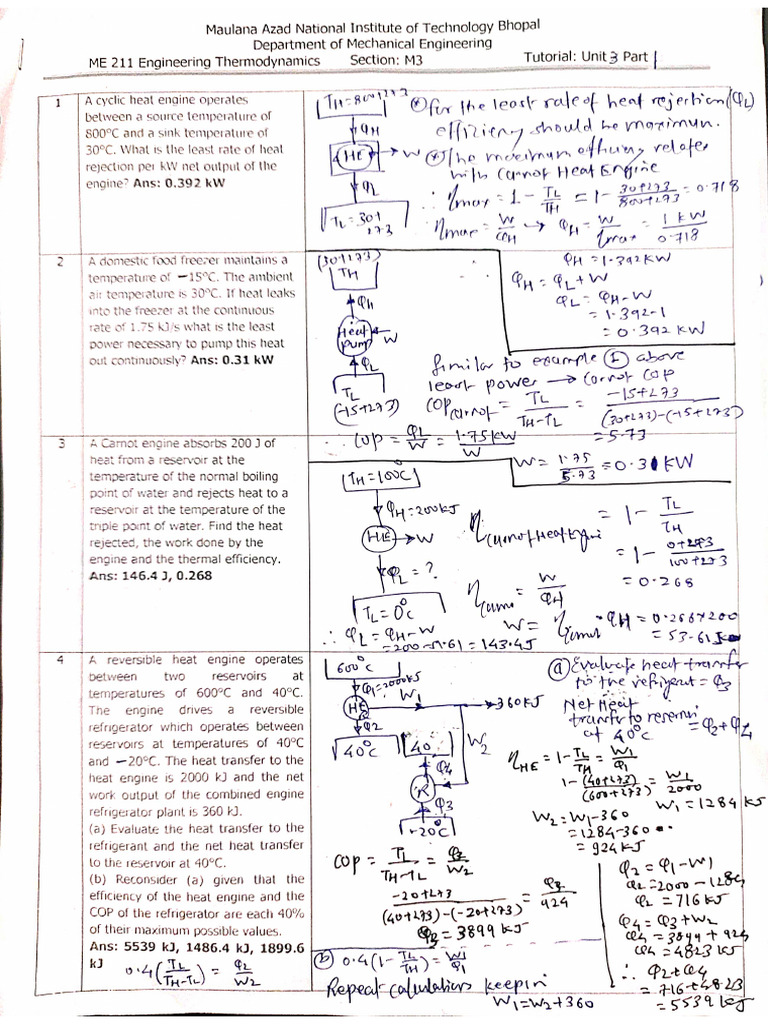 Maulana Azad National Institute of Technology Bhopal
Department of Mechanical Engineering
ME 211 Engineering Thermodynamics Section: M3 Tutorial: Unit 3 Part 1
1
A cyclic heat engine operates
between a source temperature of
800°C and a sink temperature of
30°C. What is the least rate of heat
rejection per kW net output of the
engine? Ans: 0.392 kW
TH=800+273
QH
HE
W
QL
TL=30+
273
* for the least rate of heat rejection (QL)
efficieny should be maximum.
* The maximum efficieny relates
with Carnot Heat Engine
∴ ηmax = 1 - TL/TH = 1 - 30+273/800+273 = 0.718
ηmax = W/QH → QH = W/ηmax = 1 KW/0.718
QH = 1.392 KW
QH = QL + W
QL = QH - W
= 1.392 - 1
= 0.392 KW
2
A domestic food freezer maintains a
temperature of −15°C. The ambient
air temperature is 30°C. If heat leaks
into the freezer at the continuous
rate of 1.75 kJ/s what is the least
power necessary to pump this heat
out continuously? Ans: 0.31 kW
(30+273)
TH
QH
Heat
Pump
W
QL
TL
(-15+273)
Similar to example ① above
least power → Carnot COP
COPcarnot = TL/TH-TL = -15+273/(30+273)-(-15+273)
= 5.73
∴ COP = QL/W = 1.75KW/W
W = 1.75/5.73 = 0.31 KW
3
A Carnot engine absorbs 200 J of
heat from a reservoir at the
temperature of the normal boiling
point of water and rejects heat to a
reservoir at the temperature of the
triple point of water. Find the heat
rejected, the work done by the
engine and the thermal efficiency.
Ans: 146.4 J, 0.268
TH=100°C
QH=200KJ
HE
W
QL = ?
TL=0°C
ηCarnot Heat Engine = 1 - TL/TH
= 1 - 0+273/100+273
= 0.268
ηCarnot = W/QH
W = ηCarnot · QH = 0.268×200
= 53.61
∴ QL = QH - W
= 200-53.61 = 143.4J
4
A reversible heat engine operates
between two reservoirs at
temperatures of 600°C and 40°C.
The engine drives a reversible
refrigerator which operates between
reservoirs at temperatures of 40°C
and −20°C. The heat transfer to the
heat engine is 2000 kJ and the net
work output of the combined engine
refrigerator plant is 360 kJ.
(a) Evaluate the heat transfer to the
refrigerant and the net heat transfer
to the reservoir at 40°C.
(b) Reconsider (a) given that the
efficiency of the heat engine and the
COP of the refrigerator are each 40%
of their maximum possible values.
Ans: 5539 kJ, 1486.4 kJ, 1899.6
kJ
0.4(TL/TH-TL) = Q2/W2
600°C
Q1=2000KJ
W1
HE
360KJ
Q2
W2
40°C
40
Q4
R
Q3
-20°C
ⓐ Evaluate heat transfer
to the refrigerat = Q3
Net Heat
transfer to reservoi
at 40°C = Q2 + Q4
ηHE = 1 - TL/TH = W1/Q1
1 - (40+273)/(600+273) = W1/2000
W1 = 1284 KJ
W2 = W1 - 360
= 1284 - 360
= 924 KJ
COP = TL/TH-TL = Q3/W2
-20+273/(40+273)-(-20+273) = Q3/924
Q3 = 3899 KJ
Q2 = Q1 - W1
Q2 = 2000 - 1284
Q2 = 716 KJ
Q4 = Q3 + W2
Q4 = 3899 + 924
Q4 = 4823 KJ
∴ Q2 + Q4
= 716 + 4823
= 5539 KJ
ⓑ 0.4(1 - TL/TH) = W1/Q1
Repeat calculations keepin
W1 = W2 + 360